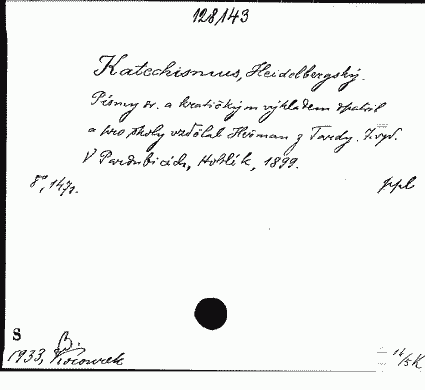 128,143
Katechismus, Heidelbergský.
Písmy sv. a kratičkým výkladem opatřil
a pro školy vzdělal Heřman z Tardy. 7. vyd.
V Pardubicích, Hoblík, 1899.
8°, 147 s. ppl
S
1933, B.
16/5 K